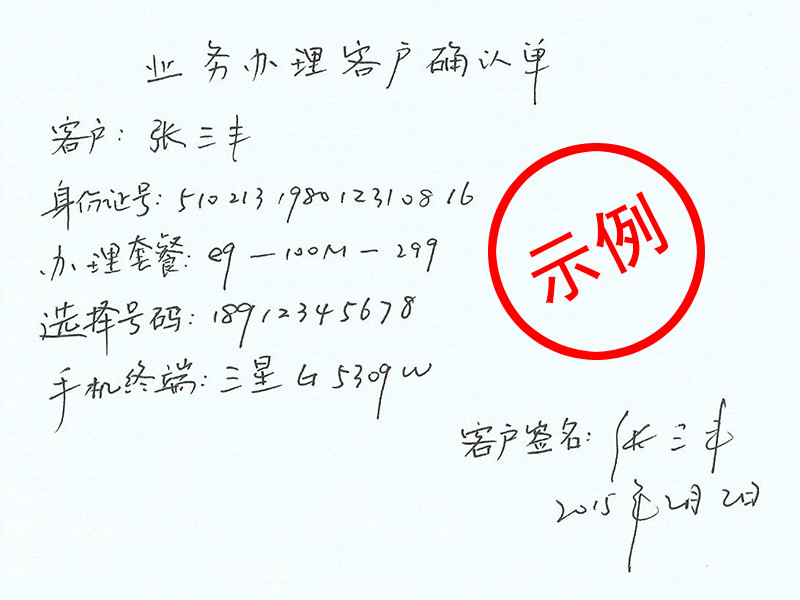 业务办理客户确认单
客户：张三丰
身份证号：510213198012310816
办理套餐：e9—100M—299
示例
选择号码：18912345678
手机终端：三星G5309W
客户签名：张三丰
2015年2月2日